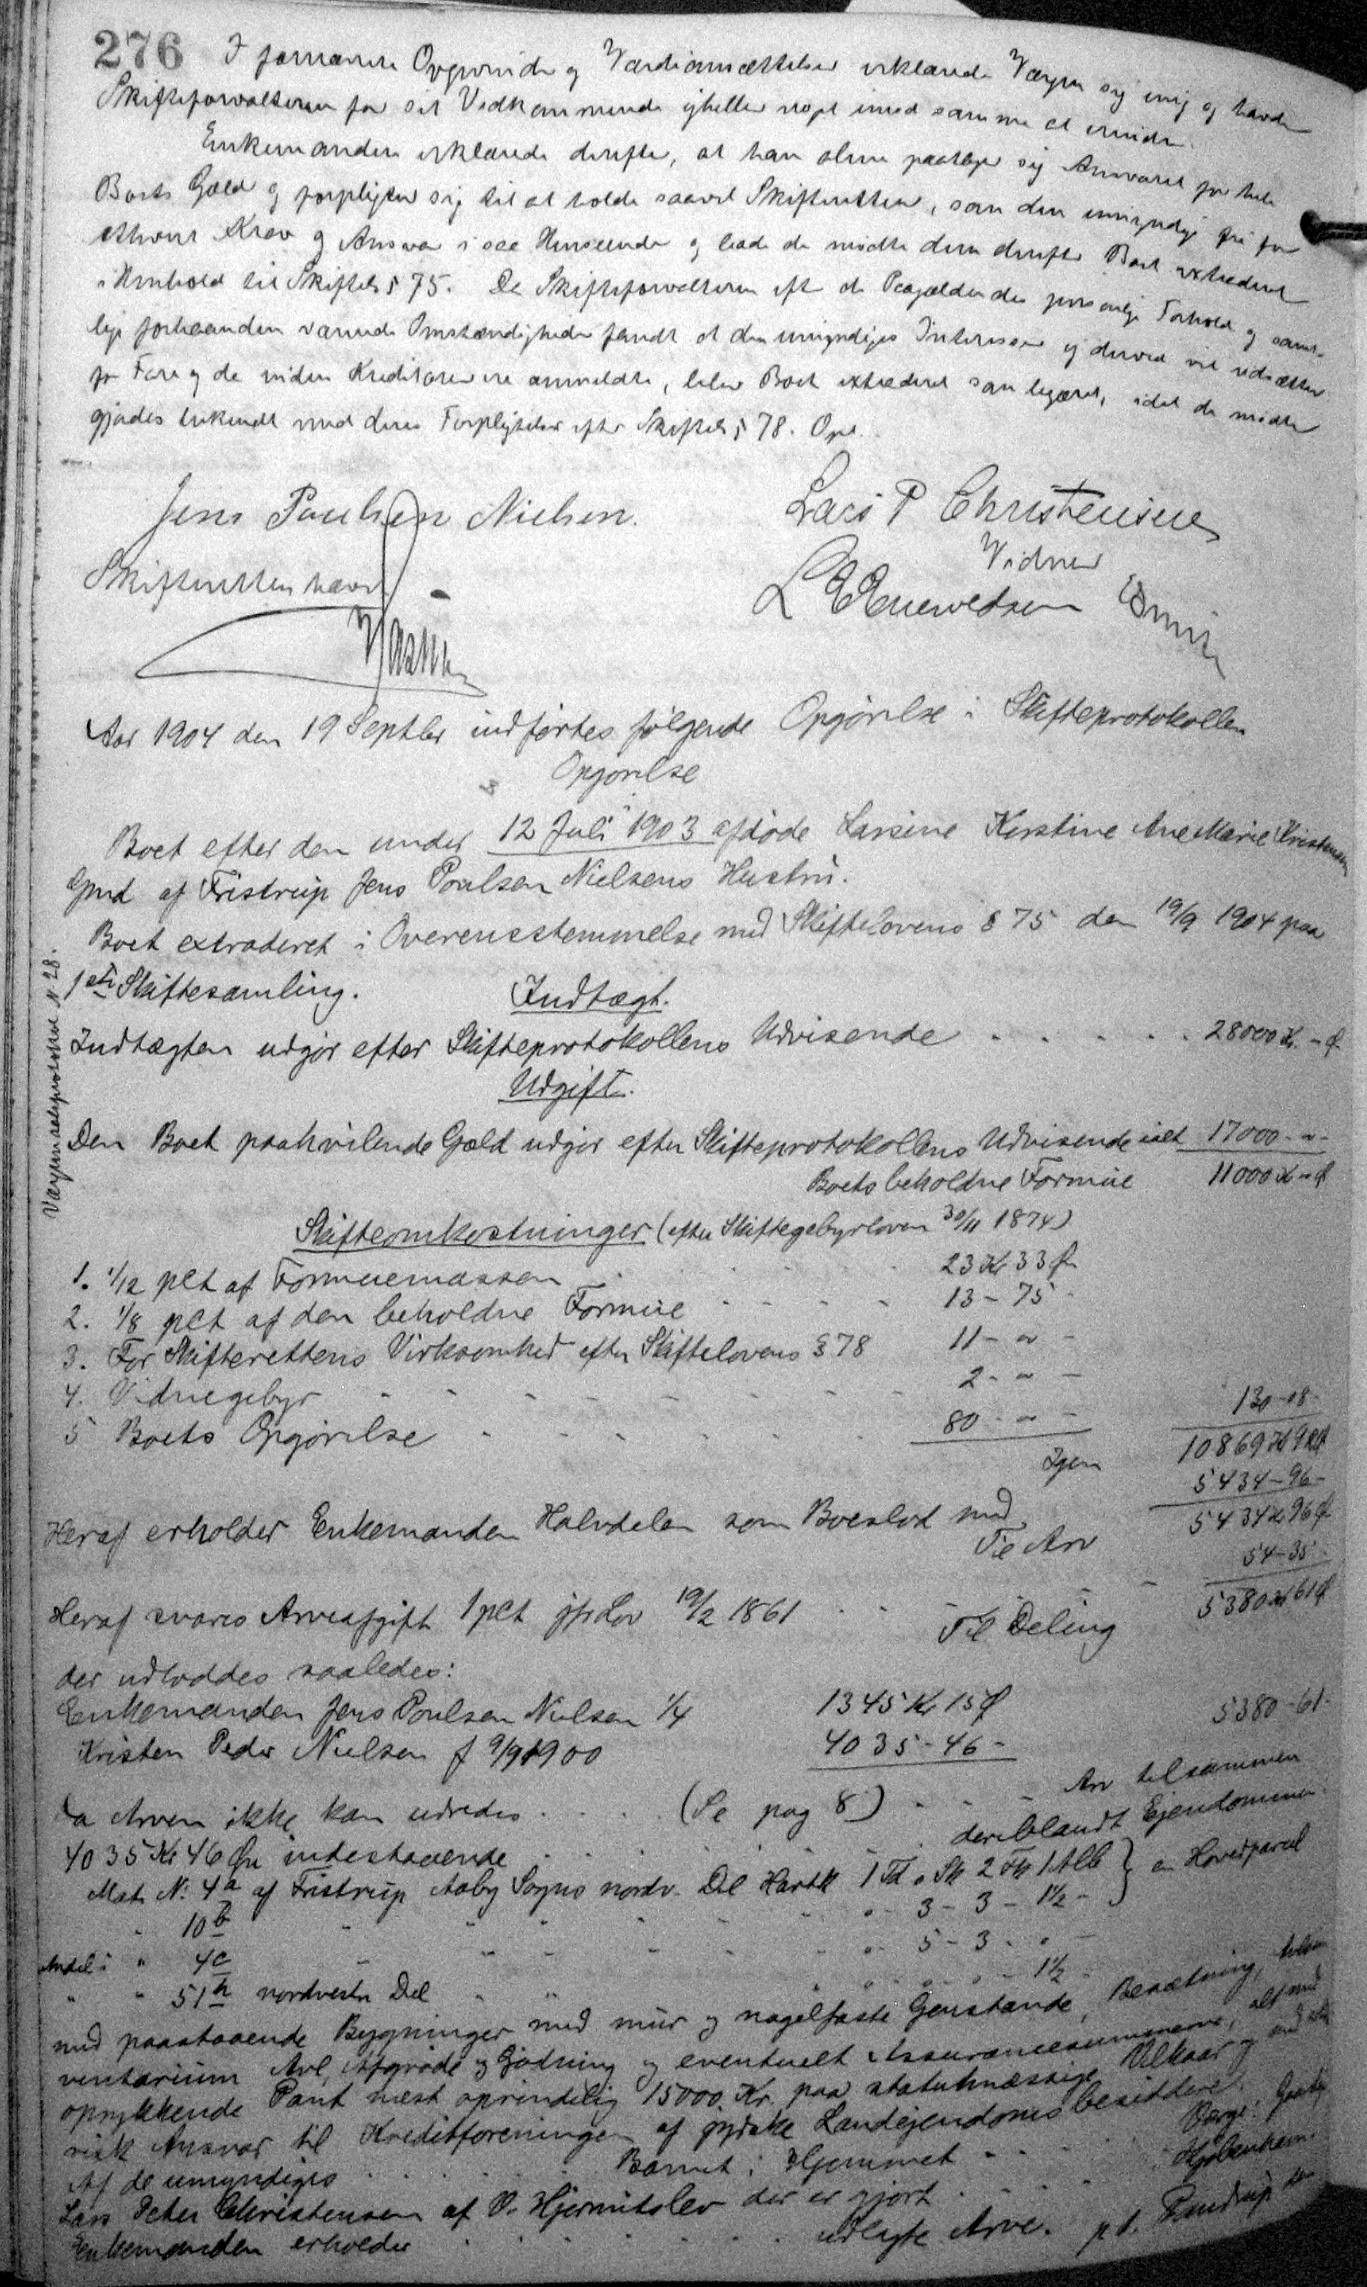 276 I foranførte Opgivende og Værdiansættelser erklærede Værgen sig enig og havde
Skifteforvalteren for sit Vedkommende ejheller noget imod samme at erindre.
Enkemanden erklærede derefter, at han alene paatager sig Ansvaret for hele
Boets Gæld og forpligter sig til at holde saavel Skifteretten, som den umyndige fri for
ethvert Krav og Ansvar i saa Henseende og bade de mødte dem derefter Boet extraderet
i Henhold til Skiftel. § 75. Da Skifteforvalteren eft. de Paagældendes personlige Forhold og samt-
lige forhaanden værende Omstændigheder fandt at den umyndiges Interesser ej derved vil udsættes
for Fare og da ingen Kreditorer ere anmeldte, blev Boet extraderet som begæret, idet de mødte
gjordes bekendt med deres Forpligtelser efter Skiftel. § 78. Opl.
Jens Poulsen Nielsen. Lars P Christensen
Skifteretten hævet Vidner
Aar 1904 den 19 Septbr indførtes følgende Opgørelse i Skifteprotokollen
Opgørelse
i
Boet efter den under 12 Juli 1903 afdøde Larsine Kirstine Ane Marie Kristensen
Gmd af Fristrup Jens Poulsen Nielsens Hustru.
Boet extraderet i Overensstemmelse med Skiftelovens § 75 den 19/9 1904 paa
1ste Skiftesamling.
Værgemaalsprotokol N. 28.
Indtægt.
Indtægten udgør efter Skifteprotokollens Udvisende . . . . . 28000 Kr. - Ø.
Udgift.
Den Boet paahvilende Gæld udgør efter Skifteprotokollens Udvisende ialt 17000 - " -
Boets beholdne Formue 11000 Kr " Ø
Skifteomkostninger (efter Skiftegebyrloven 30/11 1874)
1. 1/12 pCt af Formuemassen . . . 23 Kr 33 Ø
2. 1/8 pCt af den beholdne Formue . . . 13 - 75 -
3. For Skifterettens Virksomhed efter Skiftelovens § 78 11 - " -
4. Vidnegebyr . . . 2 - " -
5 Boets Opgørelse . . . 80 - " - 130 - 08 -
Igen 10869 Kr 92 Ø
Heraf erholder Enkemanden Halvdelen som Boeslod med 5434 - 96 -
Til Arv 5434 Kr 96 Ø
Heraf svares Arveafgift 1 pCt jfr Lov 19/2 1861 . . 54 - 35 -
Til Deling 5380 Kr 61 Ø
der udloddes saaledes:
Enkemanden Jens Poulsen Nielsen 1/4 1345 Kr 15 Ø
Kristen Peder Nielsen f 9/9 1900 4035 - 46 - 5380 - 61 -
Da Arven ikke kan udredes . . . . (Se pag 8) . . . . Arv tilsammen
4035 Kr 46 Øre indestaaende . . . . deriblandt Ejendommen
Matr N. 4a af Fristrup Aaby Sogns nordv. Del Hartk 1 Td " Sk 2 Fk 1 Alb } en Hovedparcel
" 10b " " " " " " - 3 - 3 - 1½ -
Andel i " 4c " " " " - 5 - 3 - " -
" " 51h nordvestre Del " " " - " - " - 1½ -
med paastaaende Bygninger med mur og nagelfaste Genstande, Besætning,
ventarium Avl, Afgrøde og Gødning og eventuelt Assurancesummerne, alt med
oprykkende Pant næst oprindelig 15000 Kr. paa statutmæssige Vilkaar og
risk Ansvar til Kreditforeningen af jydske Landejendomsbesiddere.
Af de umyndiges . . . . Barnet i Hjemmet . . . . Værge:
Lars Peter Christensen af V. Hjermitslev der er gjort . . . .
Enkemanden erholder . . . . udlagte Arve. p. t. Pandrup